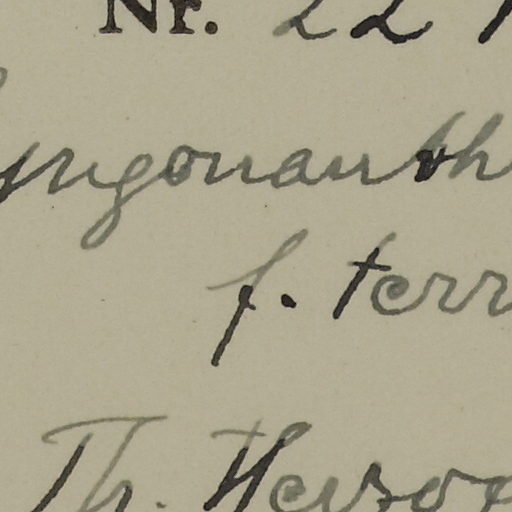 Nr. 22
Syngonanth
f. terr
Th. Herzog